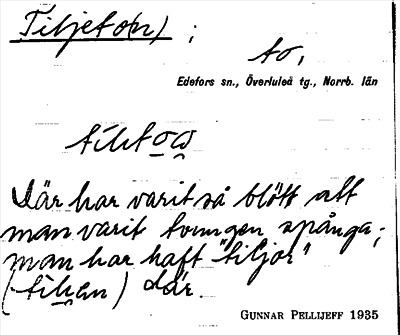 Tiljet(on) ;
to,
Edefors sn., Överluleå tg., Norrb. län
Där har varit så blött att
man varit tvungen spånga;
man har haft "tiljor"
där.
GUNNAR PELLIJEFF 1935